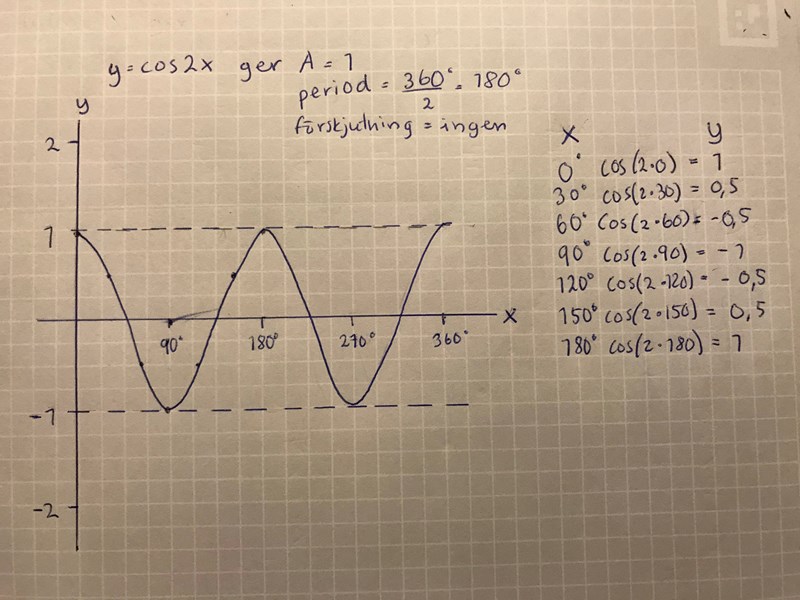 y = cos2x ger A = 1
period = 360°/2 = 180°
förskjutning = ingen
y
2
1
-1
-2
90°
180°
270°
360°
x
x y
0° cos(2·0) = 1
30° cos(2·30) = 0,5
60° cos(2·60) = -0,5
90° cos(2·90) = -1
120° cos(2·120) = -0,5
150° cos(2·150) = 0,5
180° cos(2·180) = 1